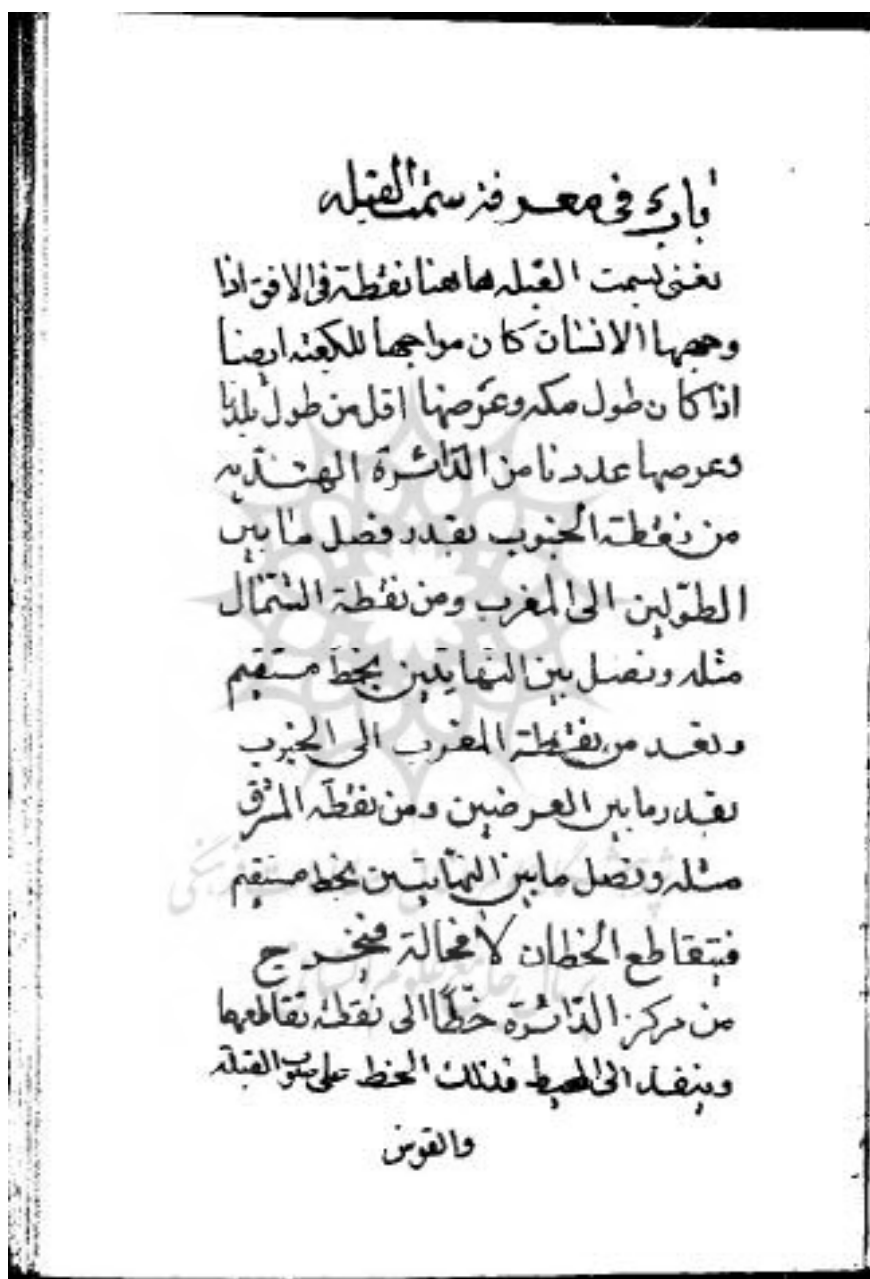 باب فى معرفة سمت القبله
نعنى بسمت القبله هاهنا نقطة فى الافق اذا
وجهها الانسان كان مواجها للكعبة ايضا
اذا كان طول مكه وعرضها اقل من طول بلدنا
وعرضها عددنا من الدائرة الهندية
من نقطة الجنوب بقدر فضل ما بين
الطولين الى المغرب ومن نقطة الشمال
مثله ونصل بين النهايتين بخط مستقيم
ونعد من نقطة المغرب الى الجنوب
بقدر ما بين العرضين ومن نقطة المشرق
مثله ونصل ما بين النهايتين بخط مستقيم
فيتقاطع الخطان لا محالة فيخرج
من مركز الدائرة خطا الى نقطة تقاطعهما
وينفذ الى المحيط فذلك الخط على صوب القبلة
والقوس